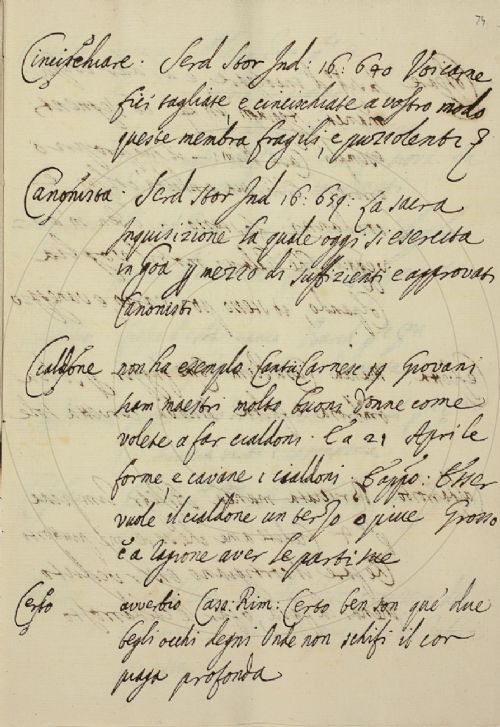 74
Cincischiare. Serd Stor Ind: 16: 640 Voi carne
fici tagliate, e cincischiate a vostro modo
queste membra fragili, e puzzolenti
Canonista. Serd Stor Ind 16: 659: La sacra
Inquisizione la quale oggi si esercita
in Goa p mezzo di suffizienti e approvati
Canonisti
Cialdone non ha esempio. Cant: Carnesc 19 Giovani
siam maestri molto buoni Donne come
volete a far cialdoni. E a 21 Aprile
forme, e cavane i cialdoni. E
vuole il cialdone un terzo o piue Grosso
a ragione aver le parti sue
Certo avverbio Casa: Rim: Certo ben son que due
begli occhi degni Onde non schifi il cor
piaga profonda